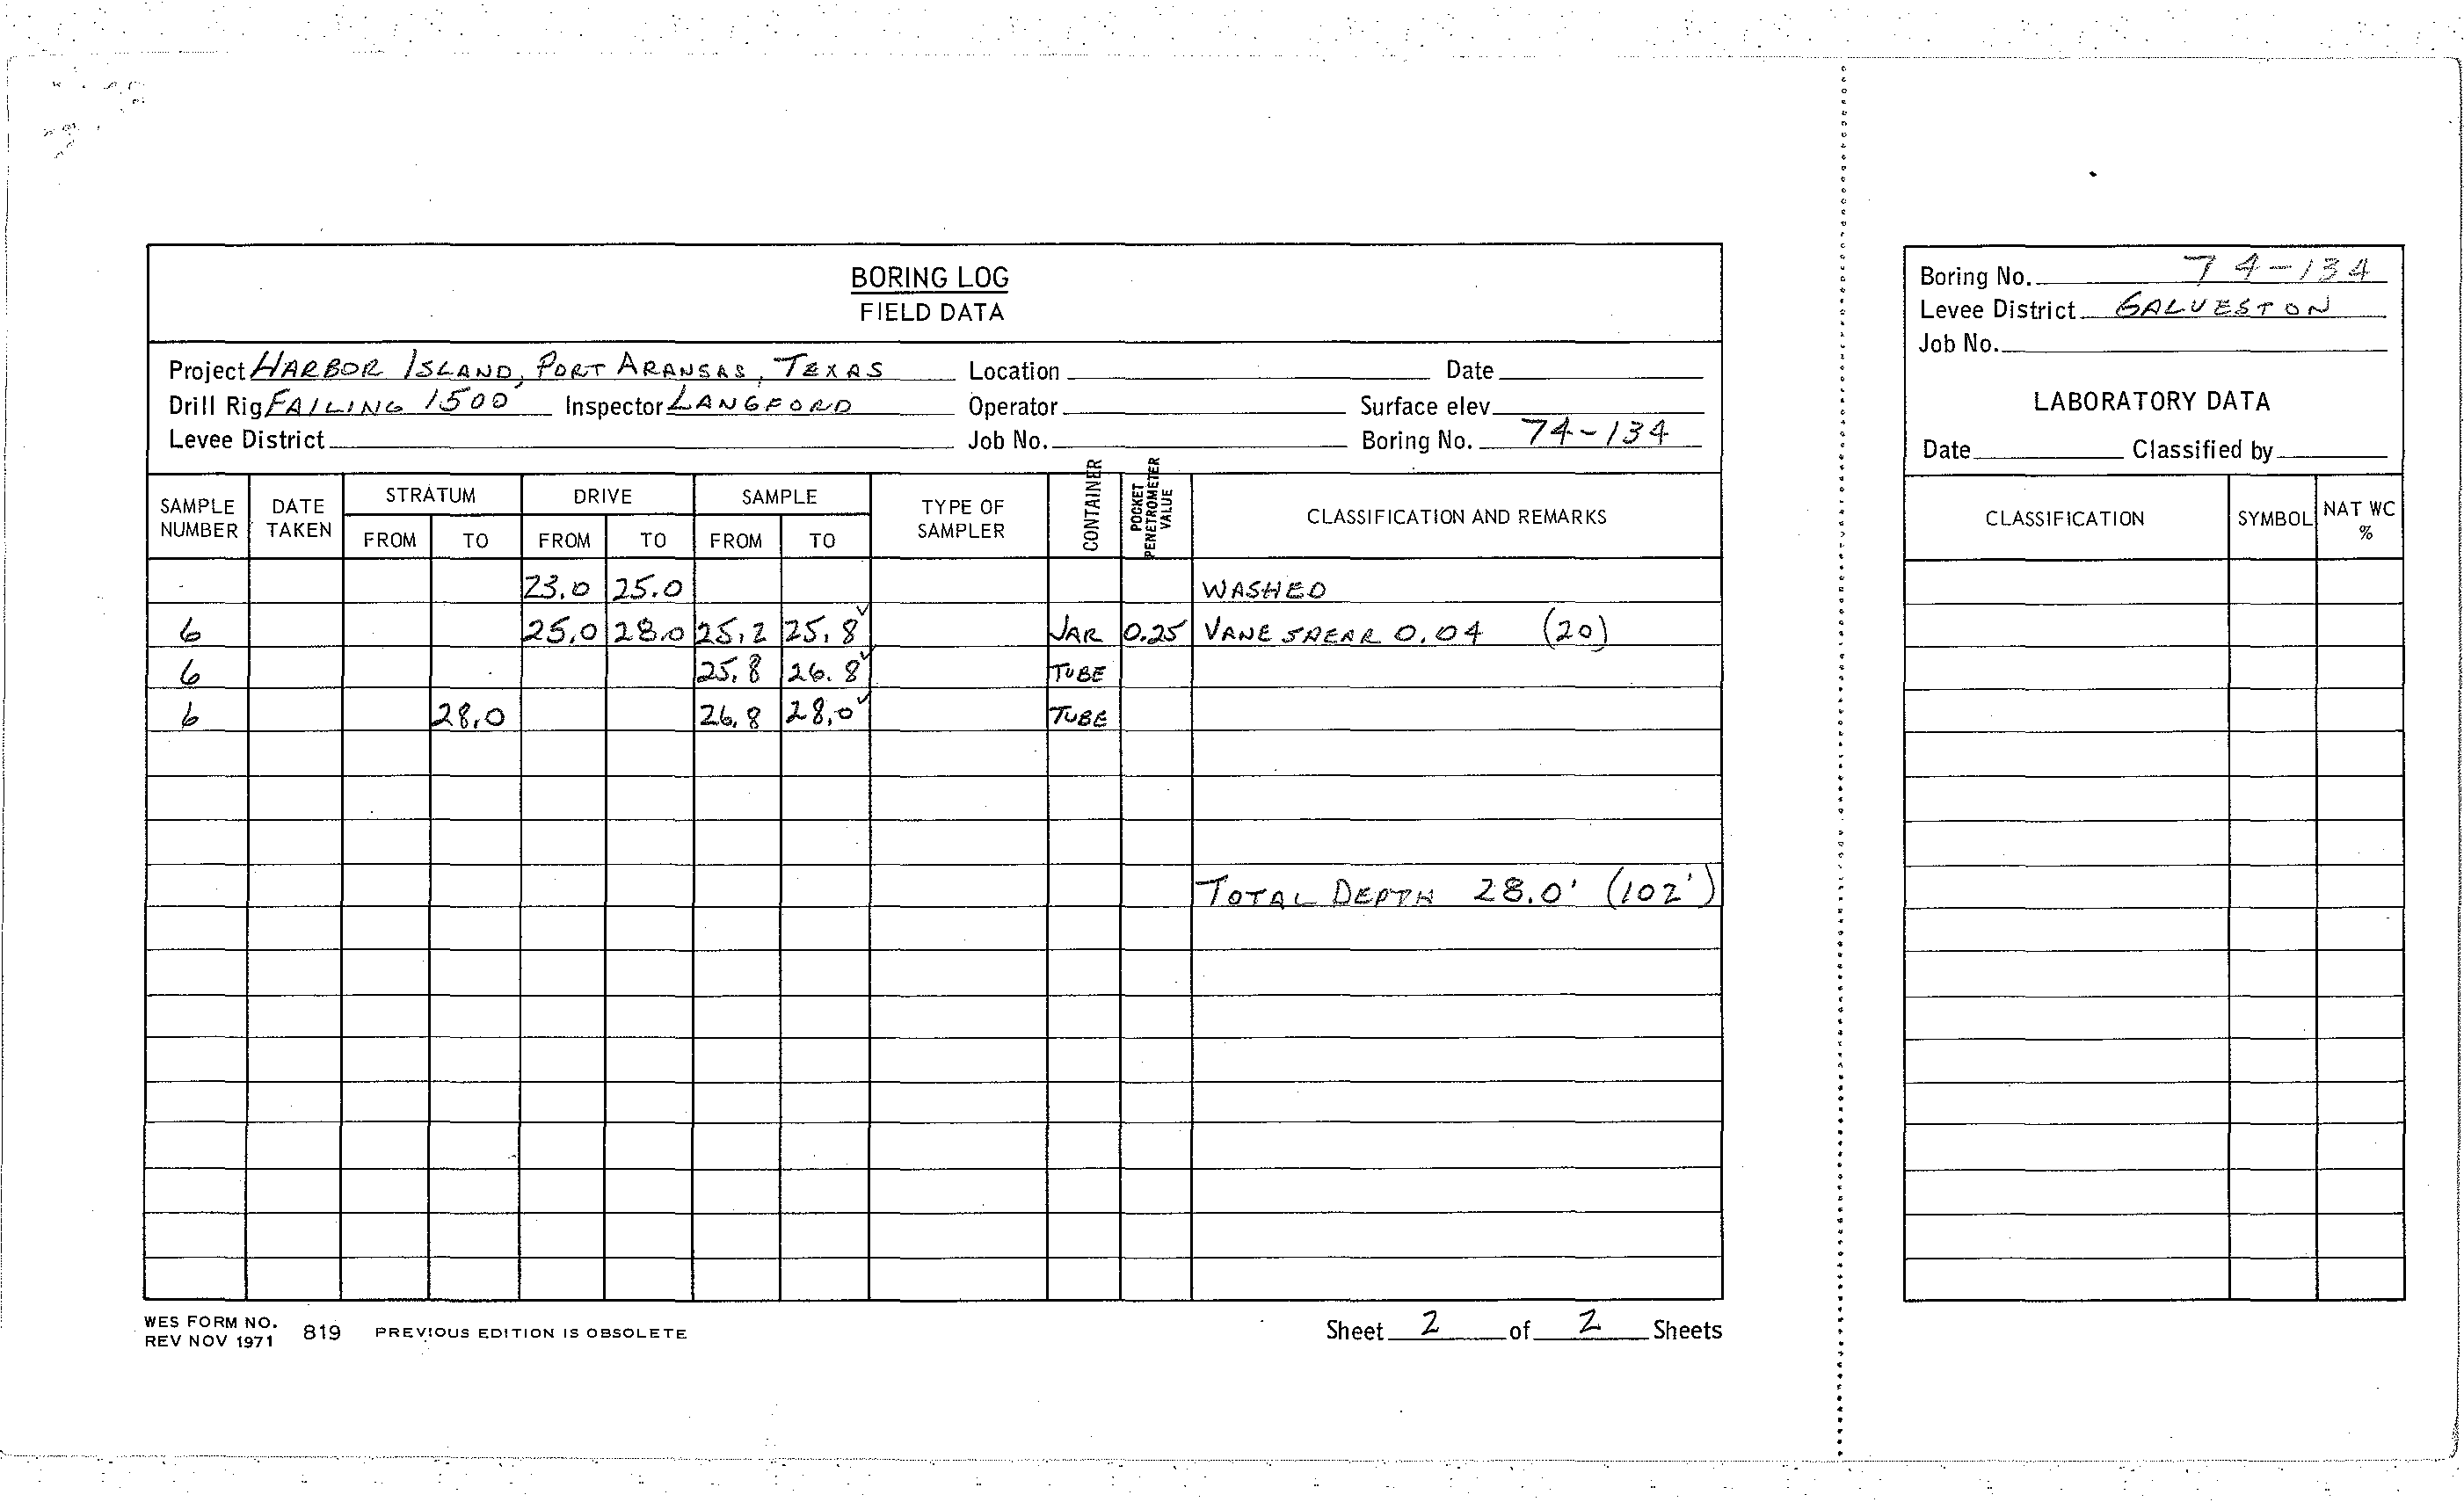 BORING LOG
FIELD DATA
Project HARBOR ISLAND, PORT ARANSAS, TEXAS Location Date
Drill Rig FAILING 1500 Inspector LANGFORD Operator Surface elev.
Levee District Job No. Boring No. 74-134
SAMPLE NUMBER DATE TAKEN STRATUM FROM TO DRIVE FROM TO SAMPLE FROM TO TYPE OF SAMPLER CONTAINER POCKET PENETROMETER VALUE CLASSIFICATION AND REMARKS
23.0 25.0 WASHED
6 25.0 28.0 25.2 25.8 ✓ JAR 0.25 VANE SHEAR 0.04 (20)
6 25.8 26.8 ✓ TUBE
6 28.0 26.8 28.0 ✓ TUBE
TOTAL DEPTH 28.0' (102')
WES FORM NO. 819 PREVIOUS EDITION IS OBSOLETE
REV NOV 1971
Sheet 2 of 2 Sheets
Boring No. 74-134
Levee District GALVESTON
Job No.
LABORATORY DATA
Date Classified by
CLASSIFICATION SYMBOL NAT WC %